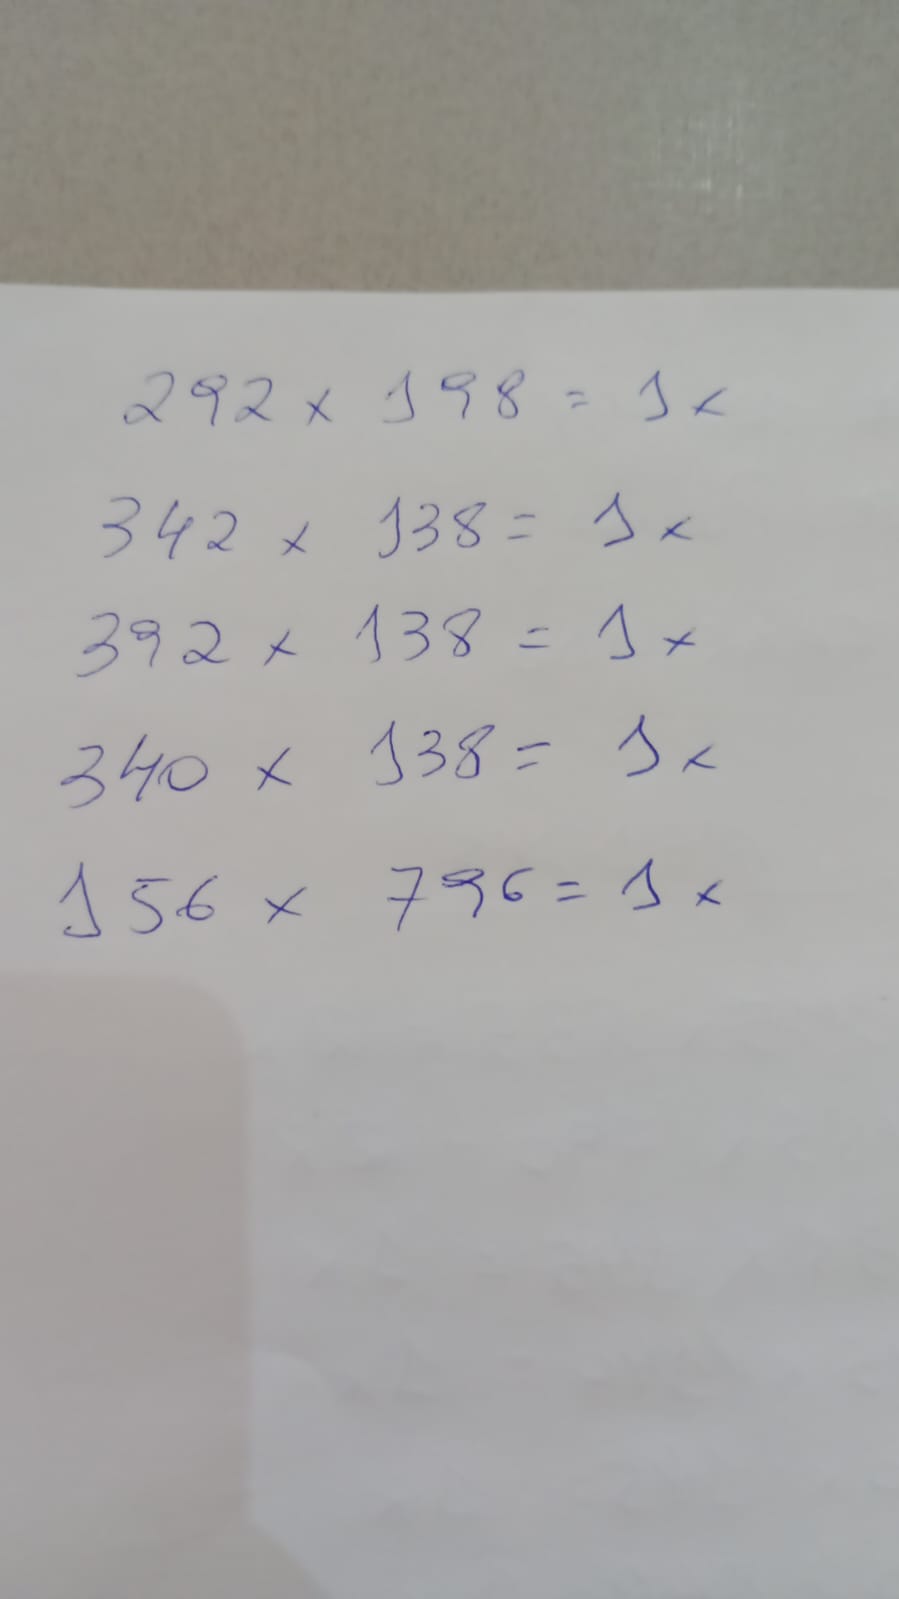 292 x 198 = 1x
342 x 138 = 1x
392 x 138 = 1x
340 x 138 = 1x
156 x 796 = 1x